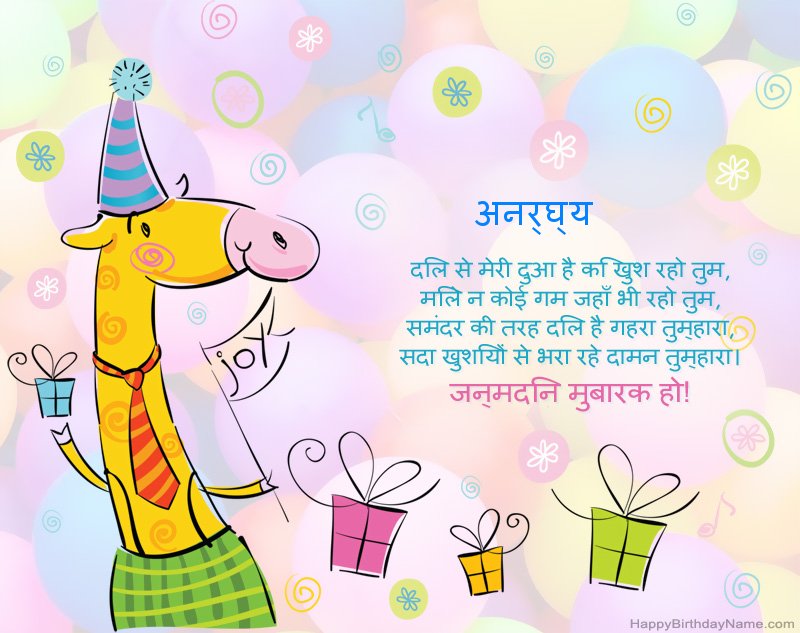 अनर्घ्य
दिल से मेरी दुआ है कि खुश रहो तुम,
मिले न कोई गम जहाँ भी रहो तुम,
समंदर की तरह दिल है गहरा तुम्हारा,
सदा खुशियों से भरा रहे दामन तुम्हारा।
जन्मदिन मुबारक हो!
joy
HappyBirthdayName.com